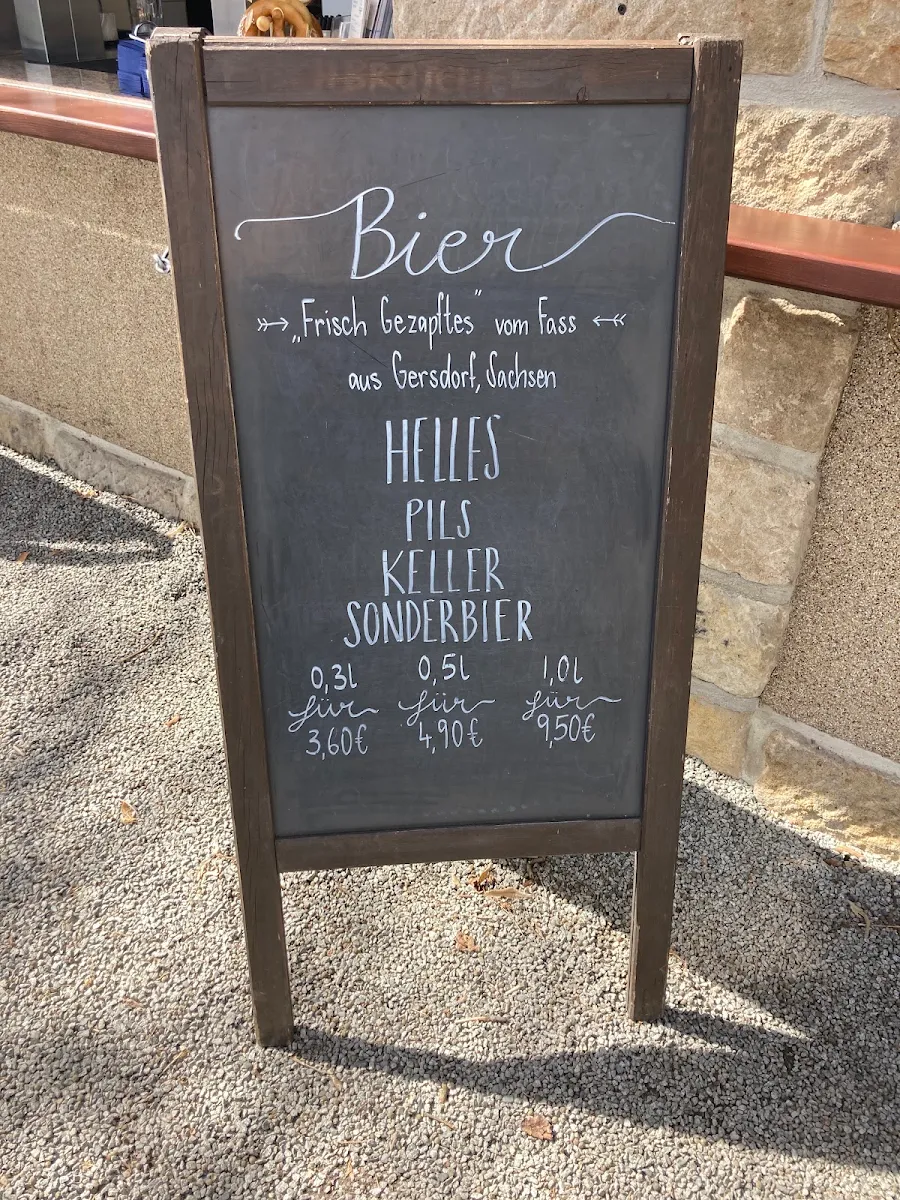 Bier
„Frisch Gezapftes" vom Fass
aus Gersdorf, Sachsen
HELLES
PILS
KELLER
SONDERBIER
0,3l 0,5l 1,0l
für für für
3,60€ 4,90€ 9,50€